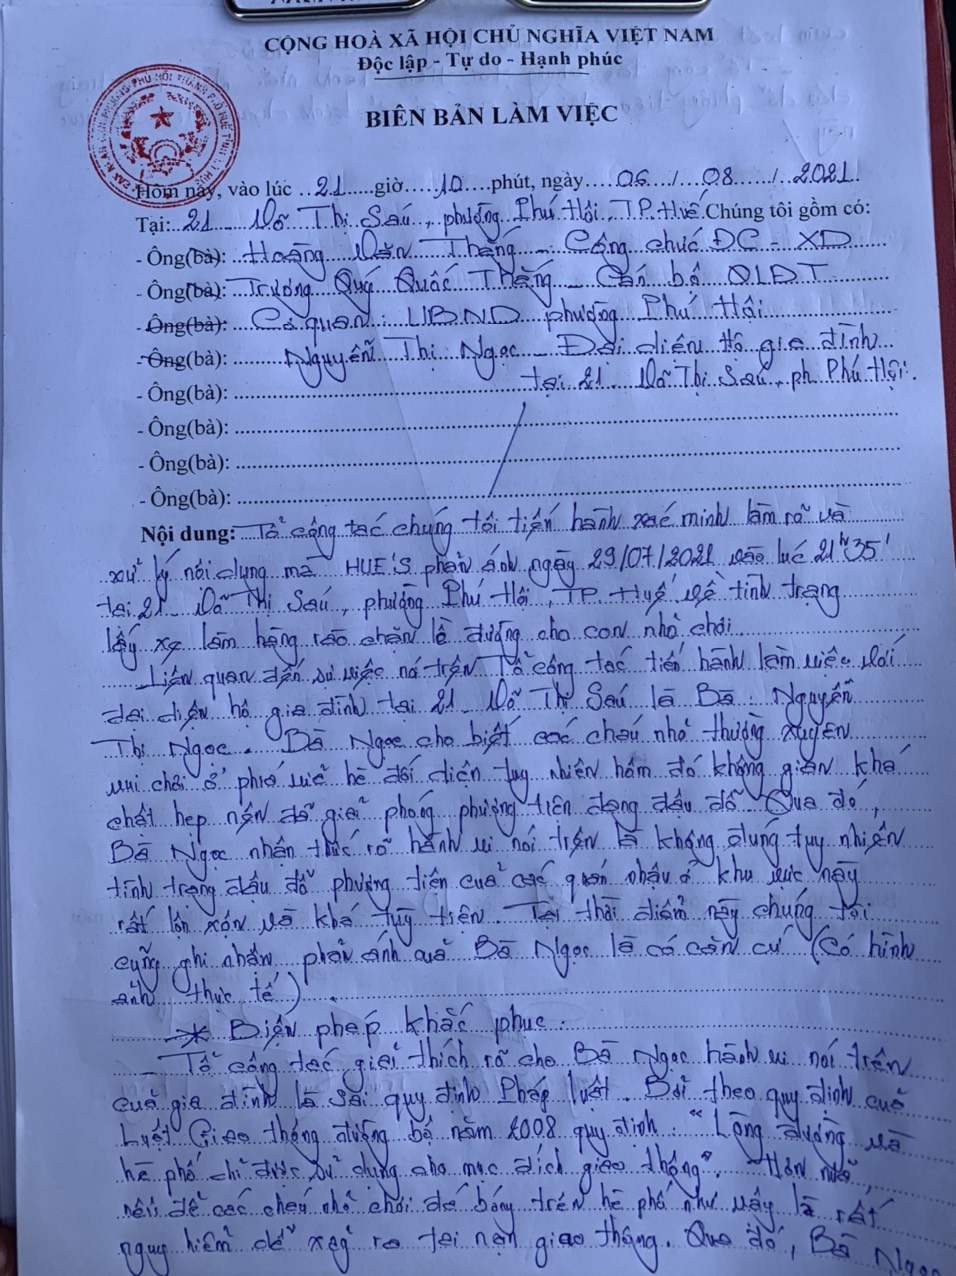 CỘNG HOÀ XÃ HỘI CHỦ NGHĨA VIỆT NAM
Độc lập - Tự do - Hạnh phúc
BIÊN BẢN LÀM VIỆC
Hôm nay, vào lúc 21 giờ 10 phút, ngày 06 / 08 / 2021
Tại: 21 Võ Thị Sáu, phường Phú Hội, TP. Huế. Chúng tôi gồm có:
- Ông(bà): Hoàng Văn Thắng - Công chức ĐC - XD
- Ông(bà): Trương Quý Quốc Thắng - Cán bộ QLĐT
- Ông(bà): Cơ quan: UBND phường Phú Hội
- Ông(bà): Nguyễn Thị Ngọc - Đại diện hộ gia đình
- Ông(bà): tại 21 Võ Thị Sáu, ph. Phú Hội.
- Ông(bà):
- Ông(bà):
- Ông(bà):
Nội dung: Tổ công tác chúng tôi tiến hành xác minh làm rõ và
xử lý nội dung mà HUE'S phản ánh ngày 29/07/2021 vào lúc 21h35'
tại 21 Võ Thị Sáu, phường Phú Hội, TP. Huế về tình trạng
lấy xe làm hàng rào chắn lề đường cho con nhỏ chơi.
Liên quan đến sự việc nói trên Tổ công tác tiến hành làm việc với
đại diện hộ gia đình tại 21 Võ Thị Sáu là Bà: Nguyễn
Thị Ngọc. Bà Ngọc cho biết các cháu nhỏ thường xuyên
vui chơi ở phía vỉa hè đối diện tuy nhiên hôm đó không gian khá
chật hẹp nên đã giải phóng phương tiện đang đậu đỗ. Qua đó,
Bà Ngọc nhận thức rõ hành vi nói trên là không đúng tuy nhiên
tình trạng đậu đỗ phương tiện của các quán nhậu ở khu vực này
rất lộn xộn và khá tùy tiện. Tại thời điểm này chúng tôi
cũng ghi nhận phản ánh của Bà Ngọc là có căn cứ (Có hình
ảnh thực tế).
* Biện pháp khắc phục:
- Tổ công tác giải thích rõ cho Bà Ngọc hành vi nói trên
của gia đình là sai quy định Pháp luật. Bởi theo quy định của
Luật Giao thông đường bộ năm 2008 quy định: "Lòng đường và
hè phố chỉ được sử dụng cho mục đích giao thông". Hơn nữa,
nếu để các cháu nhỏ chơi đá bóng trên hè phố như vậy là rất
nguy hiểm dễ xảy ra tai nạn giao thông. Qua đó, Bà Ngọc